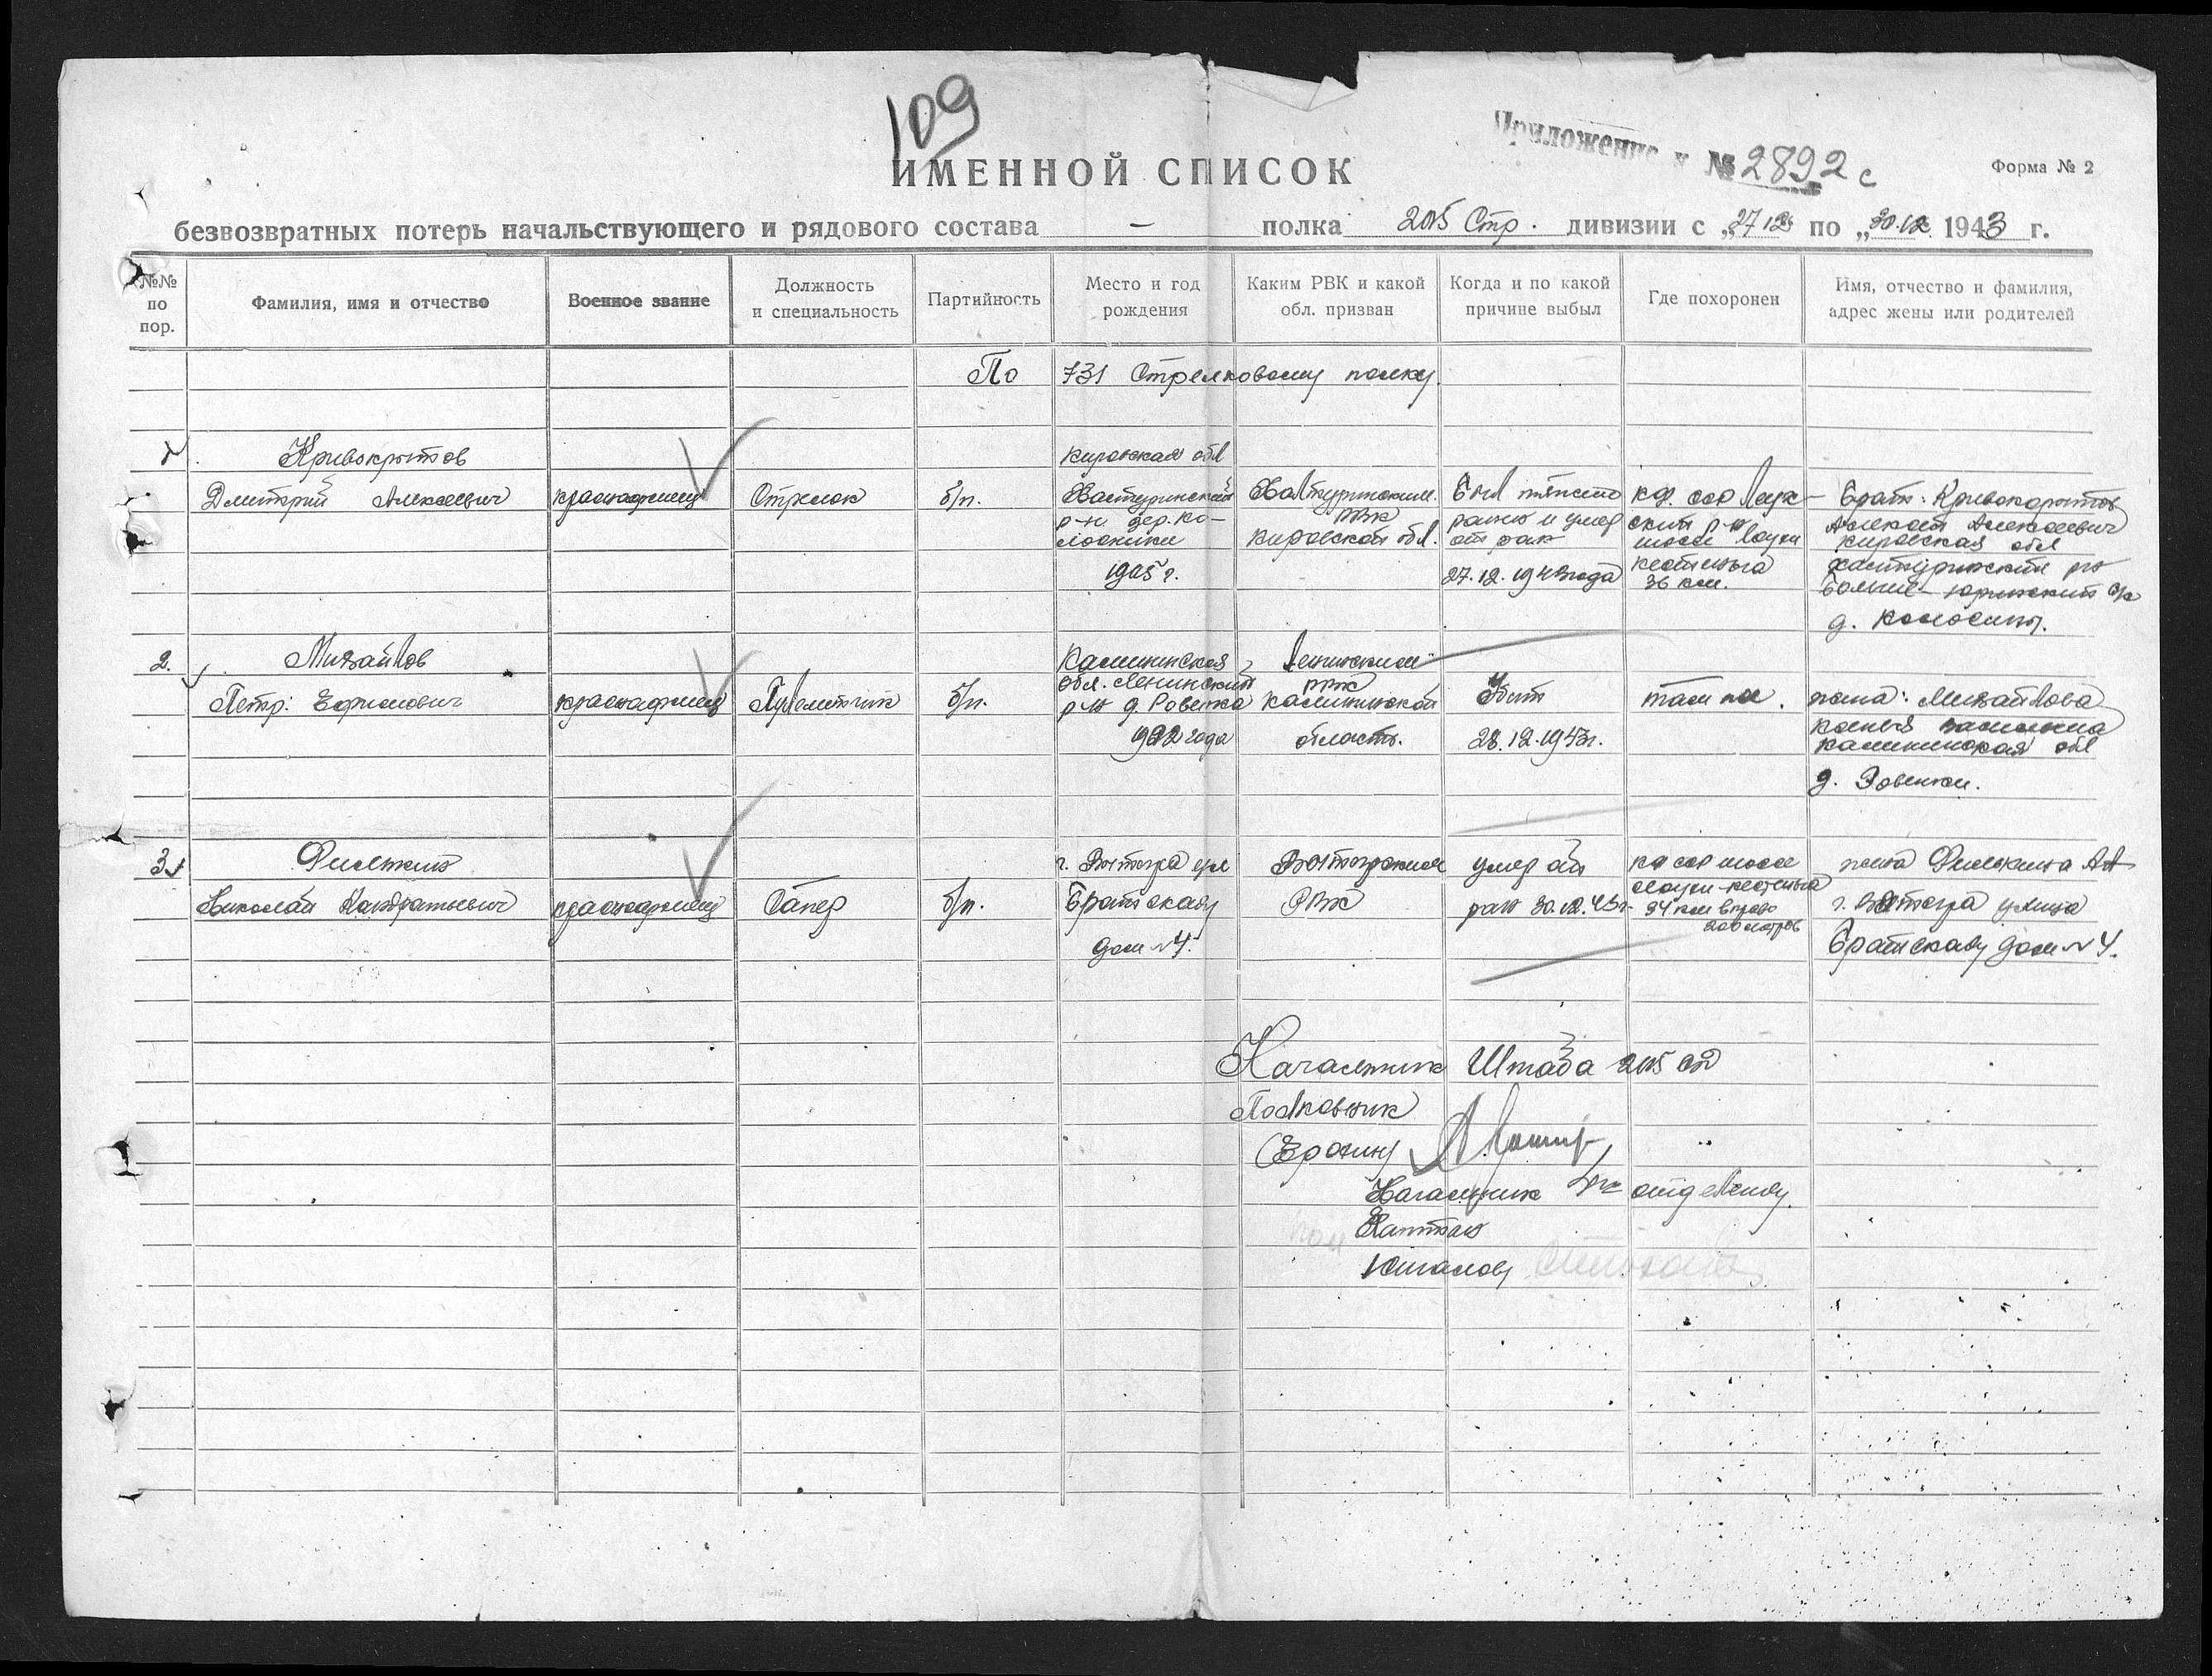 109
ИМЕННОЙ СПИСОК
Приложение к № 2892 с
Форма № 2
безвозвратных потерь начальствующего и рядового состава — полка 205 Стр. дивизии с „27 12" по „30.12. 1943 г.
№№ по пор.
Фамилия, имя и отчество
Военное звание
Должность и специальность
Партийность
Место и год рождения
Каким РВК и какой обл. призван
Когда и по какой причине выбыл
Где похоронен
Имя, отчество и фамилия, адрес жены или родителей
По 731 Стрелковому полку
1.
Кривокрытов
Дмитрий Алексеевич
красноармеец
Стрелок
б/п.
Кировская обл
Халтуринский
р-н дер. Ко-
лосники
1905 г.
Халтуринским
РВК
Кировской обл.
Был тяжело
ранен и умер
от ран
27.12.1943 года
КФ. ССР Лоух-
ский р-н
шоссе Лоухи
Кестеньга
36 км.
брат: Кривокорытов
Алексей Алексеевич
Кировская обл
Халтуринский р-н
д.
2.
Михайлов
Петр: Ефимович
красноармеец
Пулеметчик
б/п.
Калининская
обл. Ленинский
р-н д. Ровенка
1922 года
Ленинским
РВК
Калининской
область.
Убит
28.12.1943г.
там же.
жена: Михайлова
Калининская обл
д. Ровенки.
3.
Филежкин
Николай Кондратьевич
красноармеец
Сапер
б/п.
г. Вытегра ул
Братского
дом №4.
Вытегорским
РВК
умер от
ран 30.12.43г.
КФ ССР шоссе
Лоухи-Кестеньга
34 км вправо
200 метров
жена Филежкина А А
г. Вытегра улица
Братского дом №4.
Начальник Штаба 205 СД
Полковник
Начальник отделения
Капитан